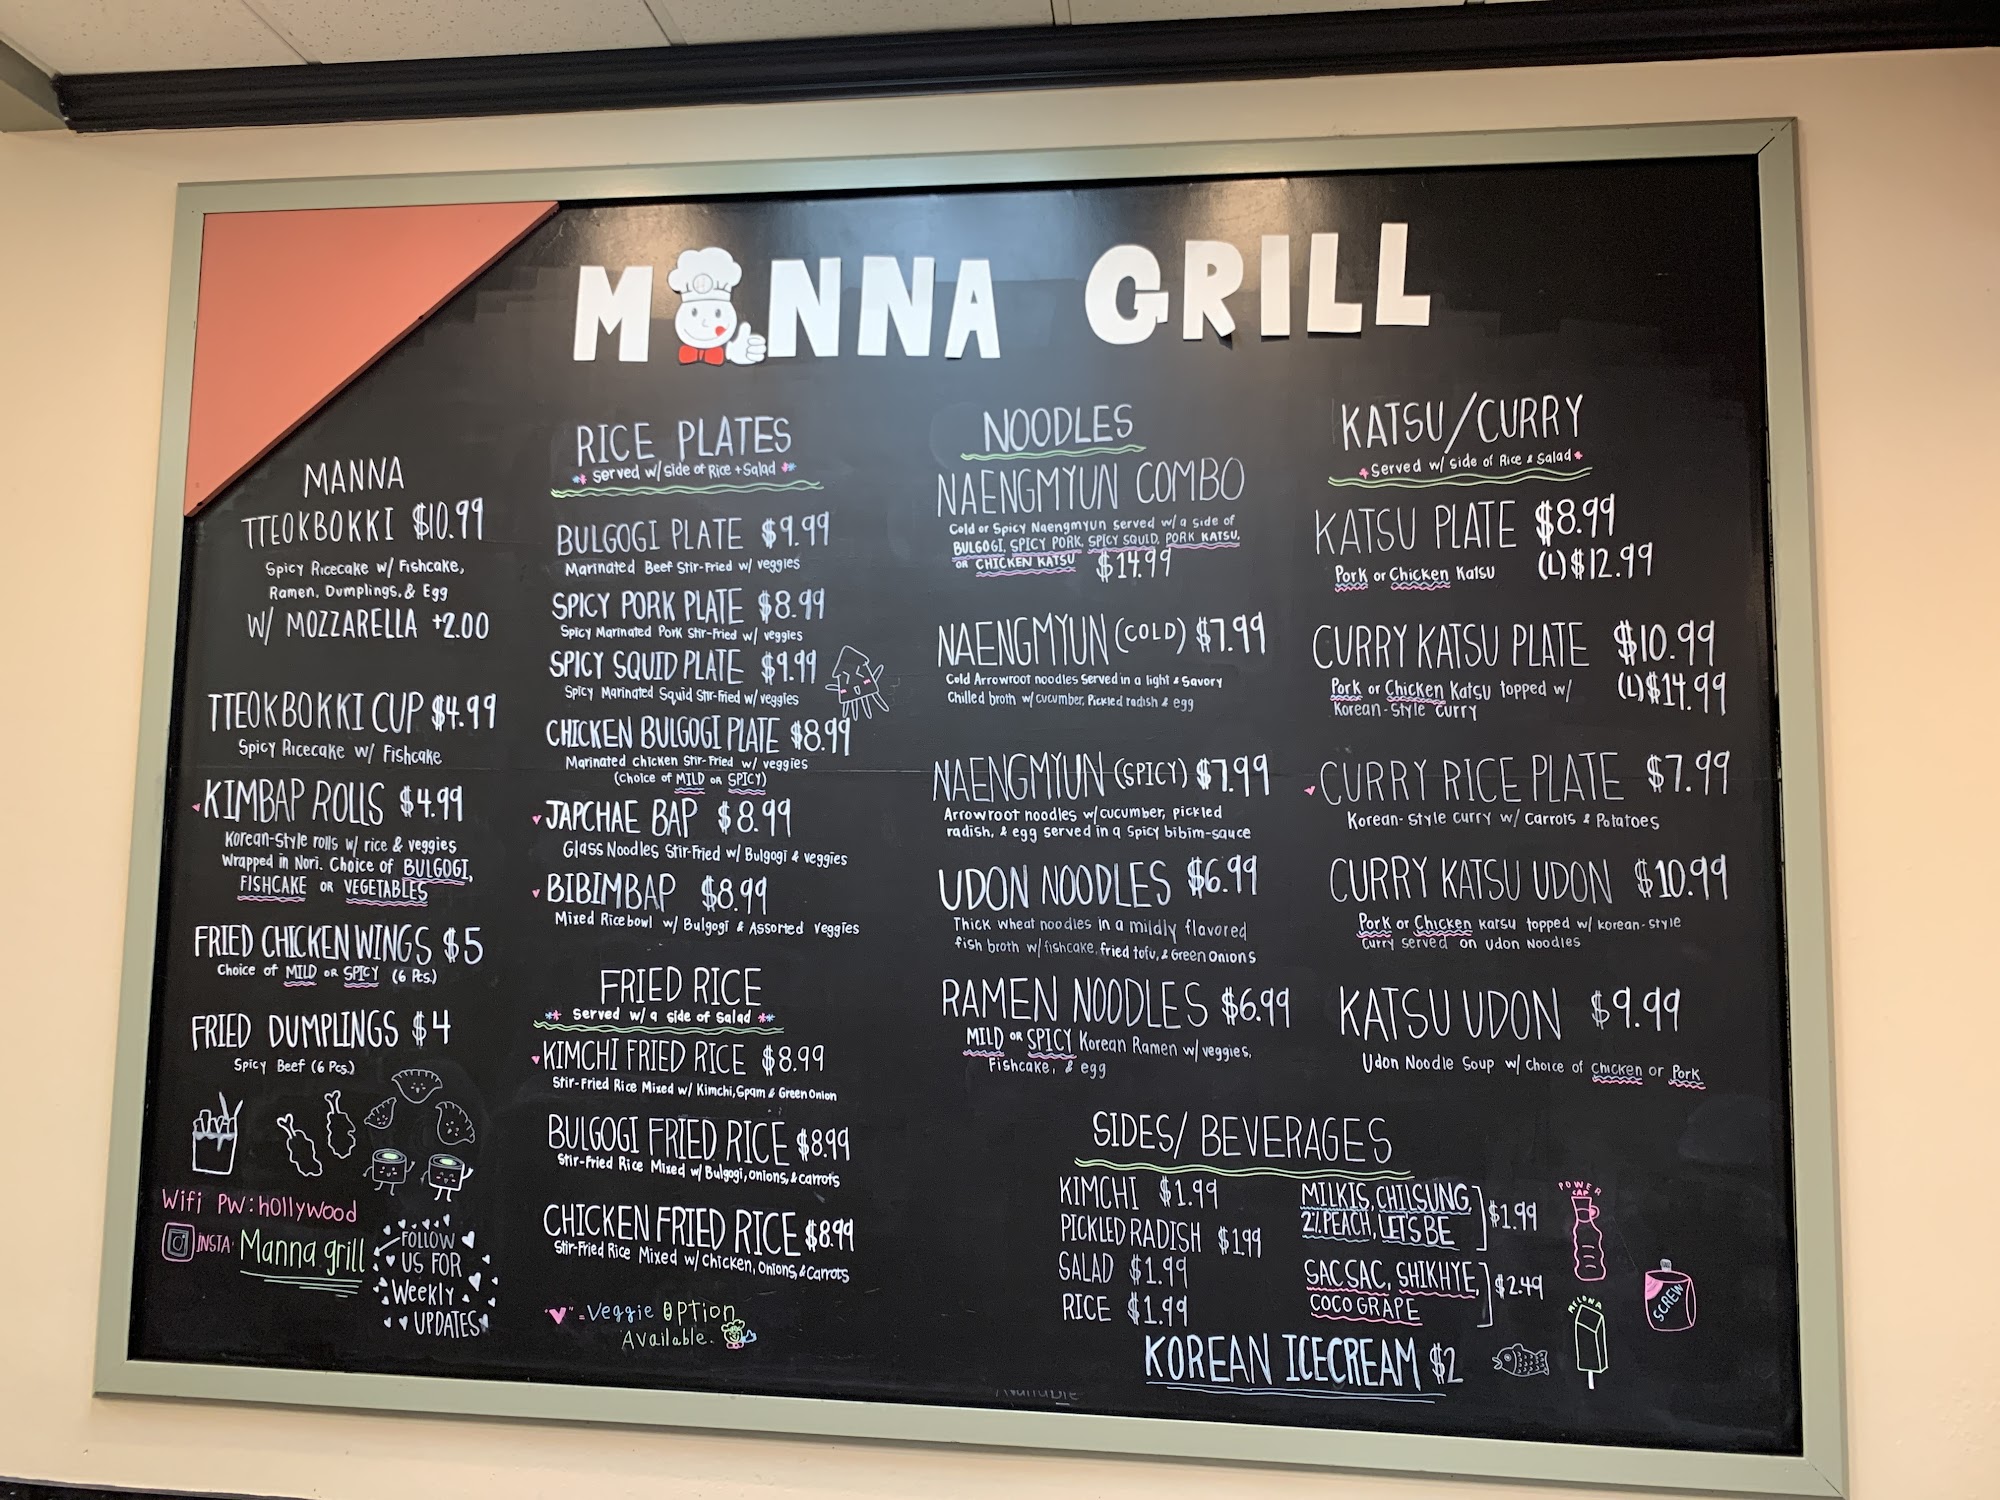 MANNA GRILL
MANNA
TTEOKBOKKI $10.99
Spicy Ricecake w/ Fishcake,
Ramen, Dumplings, & Egg
W/ MOZZARELLA +2.00
TTEOKBOKKI CUP $4.99
Spicy Ricecake w/ Fishcake
KIMBAP ROLLS $4.99
Korean-Style rolls w/ rice & veggies
Wrapped in Nori. Choice of BULGOGI,
FISHCAKE OR VEGETABLES
FRIED CHICKEN WINGS $5
Choice of MILD OR SPICY (6 Pcs.)
FRIED DUMPLINGS $4
Spicy Beef (6 Pcs.)
Wifi PW: hollywood
INSTA: Manna grill
FOLLOW
US FOR
Weekly
UPDATES
RICE PLATES
Served w/ Side of Rice + Salad
BULGOGI PLATE $9.99
Marinated Beef Stir-Fried w/ veggies
SPICY PORK PLATE $8.99
Spicy Marinated Pork Stir-Fried w/ veggies
SPICY SQUID PLATE $9.99
Spicy Marinated Squid Stir-Fried w/ veggies
CHICKEN BULGOGI PLATE $8.99
Marinated chicken Stir-Fried w/ veggies
(choice of MILD OR SPICY)
JAPCHAE BAP $8.99
Glass Noodles Stir-Fried w/ Bulgogi & veggies
BIBIMBAP $8.99
Mixed Ricebowl w/ Bulgogi & Assorted veggies
FRIED RICE
Served w/ a side of Salad
KIMCHI FRIED RICE $8.99
Stir-Fried Rice Mixed w/ Kimchi, Spam & Green Onion
BULGOGI FRIED RICE $8.99
Stir-Fried Rice Mixed w/ Bulgogi, onions, & carrots
CHICKEN FRIED RICE $8.99
Stir-Fried Rice Mixed w/ Chicken, Onions, & Carrots
"♥" = Veggie Option
Available.
NOODLES
NAENGMYUN COMBO
Cold or Spicy Naengmyun served w/ a side of
BULGOGI, SPICY PORK, SPICY SQUID, PORK KATSU,
OR CHICKEN KATSU $14.99
NAENGMYUN (COLD) $7.99
Cold Arrowroot noodles served in a light & Savory
Chilled broth w/ cucumber, Pickled radish & egg
NAENGMYUN (SPICY) $7.99
Arrowroot noodles w/ cucumber, pickled
radish, & egg served in a spicy bibim-sauce
UDON NOODLES $6.99
Thick wheat noodles in a mildly flavored
fish broth w/ fishcake, fried tofu, & Green Onions
RAMEN NOODLES $6.99
MILD OR SPICY Korean Ramen w/ veggies,
Fishcake, & egg
KATSU/CURRY
Served w/ side of Rice & Salad
KATSU PLATE $8.99
Pork or Chicken Katsu (L) $12.99
CURRY KATSU PLATE $10.99
Pork or Chicken Katsu topped w/ (L) $14.99
Korean-Style curry
CURRY RICE PLATE $7.99
Korean-style curry w/ Carrots & Potatoes
CURRY KATSU UDON $10.99
Pork or Chicken Katsu topped w/ korean-style
curry served on Udon Noodles
KATSU UDON $9.99
Udon Noodle Soup w/ choice of Chicken or Pork
SIDES/ BEVERAGES
KIMCHI $1.99
PICKLED RADISH $1.99
SALAD $1.99
RICE $1.99
MILKIS, CHILSUNG,
2% PEACH, LET'S BE $1.99
SACSAC, SHIKHYE,
COCO GRAPE $2.49
KOREAN ICECREAM $2
POWER
CAP
MELONA
SCREW
Available